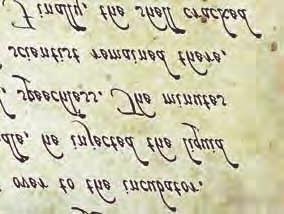 over to the incubator.
dle, he injected the liquid
speechless. The minutes
scientist remained there,
Finally, the shell cracked